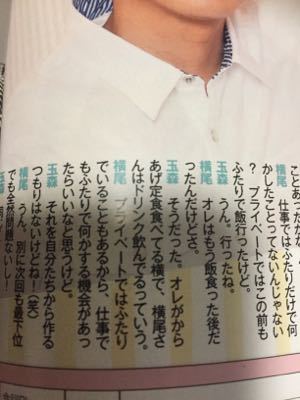 ことあったかな
仕事ではふたりだけで何
かしたことってないんじゃない
？　プライベートではこの前も
ふたりで飯行ったけど。
玉森　うん。行ったね。
横尾　オレはもう飯食った後だ
ったんだけどさ。
玉森　そうだった。オレがから
あげ定食食べてる横で、横尾さ
んはドリンク飲んでるっていう。
横尾　プライベートではふたり
ていることもあるから、仕事で
もふたりで何かする機会があっ
たらいいなと思うけど。
玉森　それを自分たちから作る
つもりはないけどね！（笑）
横尾　うん。別に次回も最下位
でも全然問題ないし！